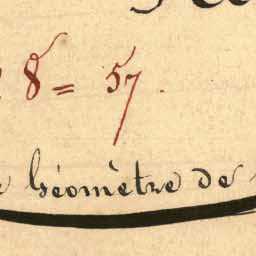 8 = 57.
Géomètre de